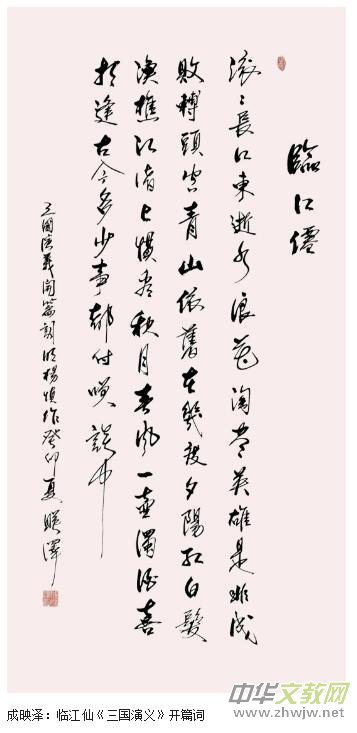 臨江僊
滚〻長江東逝水浪花淘盡英雄是非成
敗轉頭空青山依舊在幾度夕陽紅白髮
漁樵江渚上慣看秋月春風一壺濁酒喜
相逢古今多少事都付笑談中
三國演義開篇詞明楊慎作癸卯夏映澤
中华文教网
www.zhwjw.net
成映泽：临江仙《三国演义》开篇词